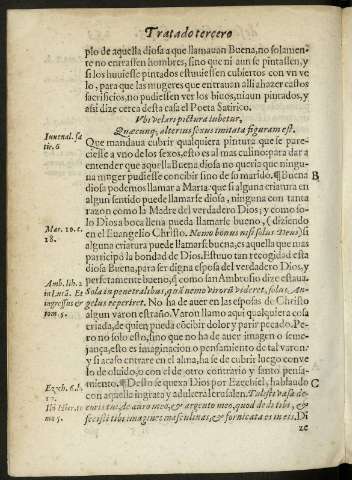 Tratado tercero
plo de aquella diosa a que llamauan Buena, no solamen-
te no entrassen hombres, sino que ni aun se pintassen, y
si los huuiesse pintados estuuiessen cubiertos con vn ve
lo, para que las mugeres que entrauan alli a hazer castos
sacrificios, no pudiessen ver los biuos, ni aun pintados, y
assi dize cerca desta casa el Poeta Satirico.
Vbi velari pictura iubetur,
Iuuenal. sa
tir. 6
Quæcunq; alterius sexus imitata figuram est.
Que mandaua cubrir qualquiera pintura que se pare-
ciesse a vno de los sexos, esto es al masculino: para dar a
entender que aquella Buena diosa no queria que ningu-
na muger pudiesse concibir sino de su marido. ¶ Buena
B
diosa podemos llamar a Marta: que si alguna criatura en
algun sentido puede llamarse diosa, ninguna con tanta
razon como la Madre del verdadero Dios; y como so-
lo Dios a boca llena pueda llamarse bueno, (diziendo
Mar. 10. c.
18.
en el Euangelio Christo. Nemo bonus nisi solus Deus) si
alguna criatura puede llamarse buena, es aquella que mas
participò la bondad de Dios. Estuuo tan recogida esta
diosa Buena, para ser digna esposa del verdadero Dios, y
perfetamente bueno, q̃ como san Ambrosio dize estaua.
Amb. lib. 2
in Lucã. Et
ingressus &
tom. 5.
Sola in penetralibus, quã nemo virorũ videret, solus An-
gelus reperiret. No ha de auer en las esposas de Christo
algun varon estraño. Varon llamo aqui qualquiera cosa
criada, de quien pueda cõcibir dolor y parir pecado. Pe-
ro no solo esto, sino que no ha de auer imagen o seme-
jança, esto es imaginacion o pensamiento de tal varon:
y si acaso entrare en el alma, ha se de cubrir luego con ve
lo de oluido, o con el de otro contrario y santo pensa-
miento. ¶ Desto se quexa Dios por Ezechiel, hablando
C
Ezech. 6. b.
con aquella ingrata y adultera Ierusalen. Tulisti vasa de-
coris tui, de auro meo, & argento meo, quod dedi tibi, &
fecisti tibi imagines masculinas, & fornicata es in eis. Di
ze